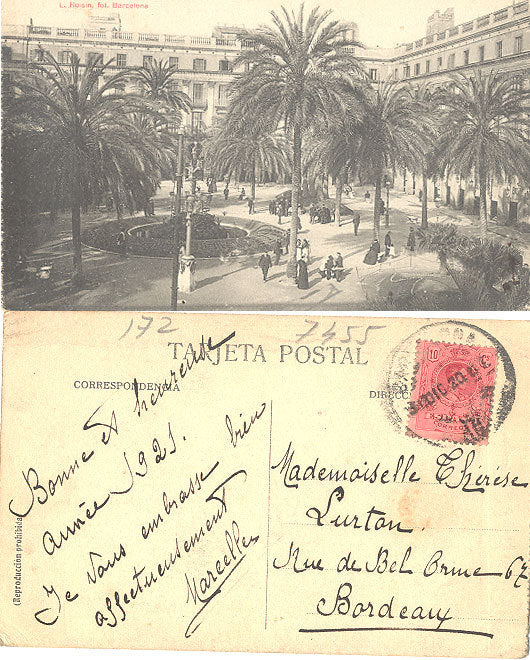 L. Roisin, fot. Barcelona
172 7455
TARJETA POSTAL
CORRESPONDENCIA
Bonne et heureuse
année 1921.
Je vous embrasse bien
affectueusement
Marcelle
(Reproducción prohibida)
10 C
Mademoiselle Thérèse
Lurton
Rue de Bel Orme 67
Bordeaux